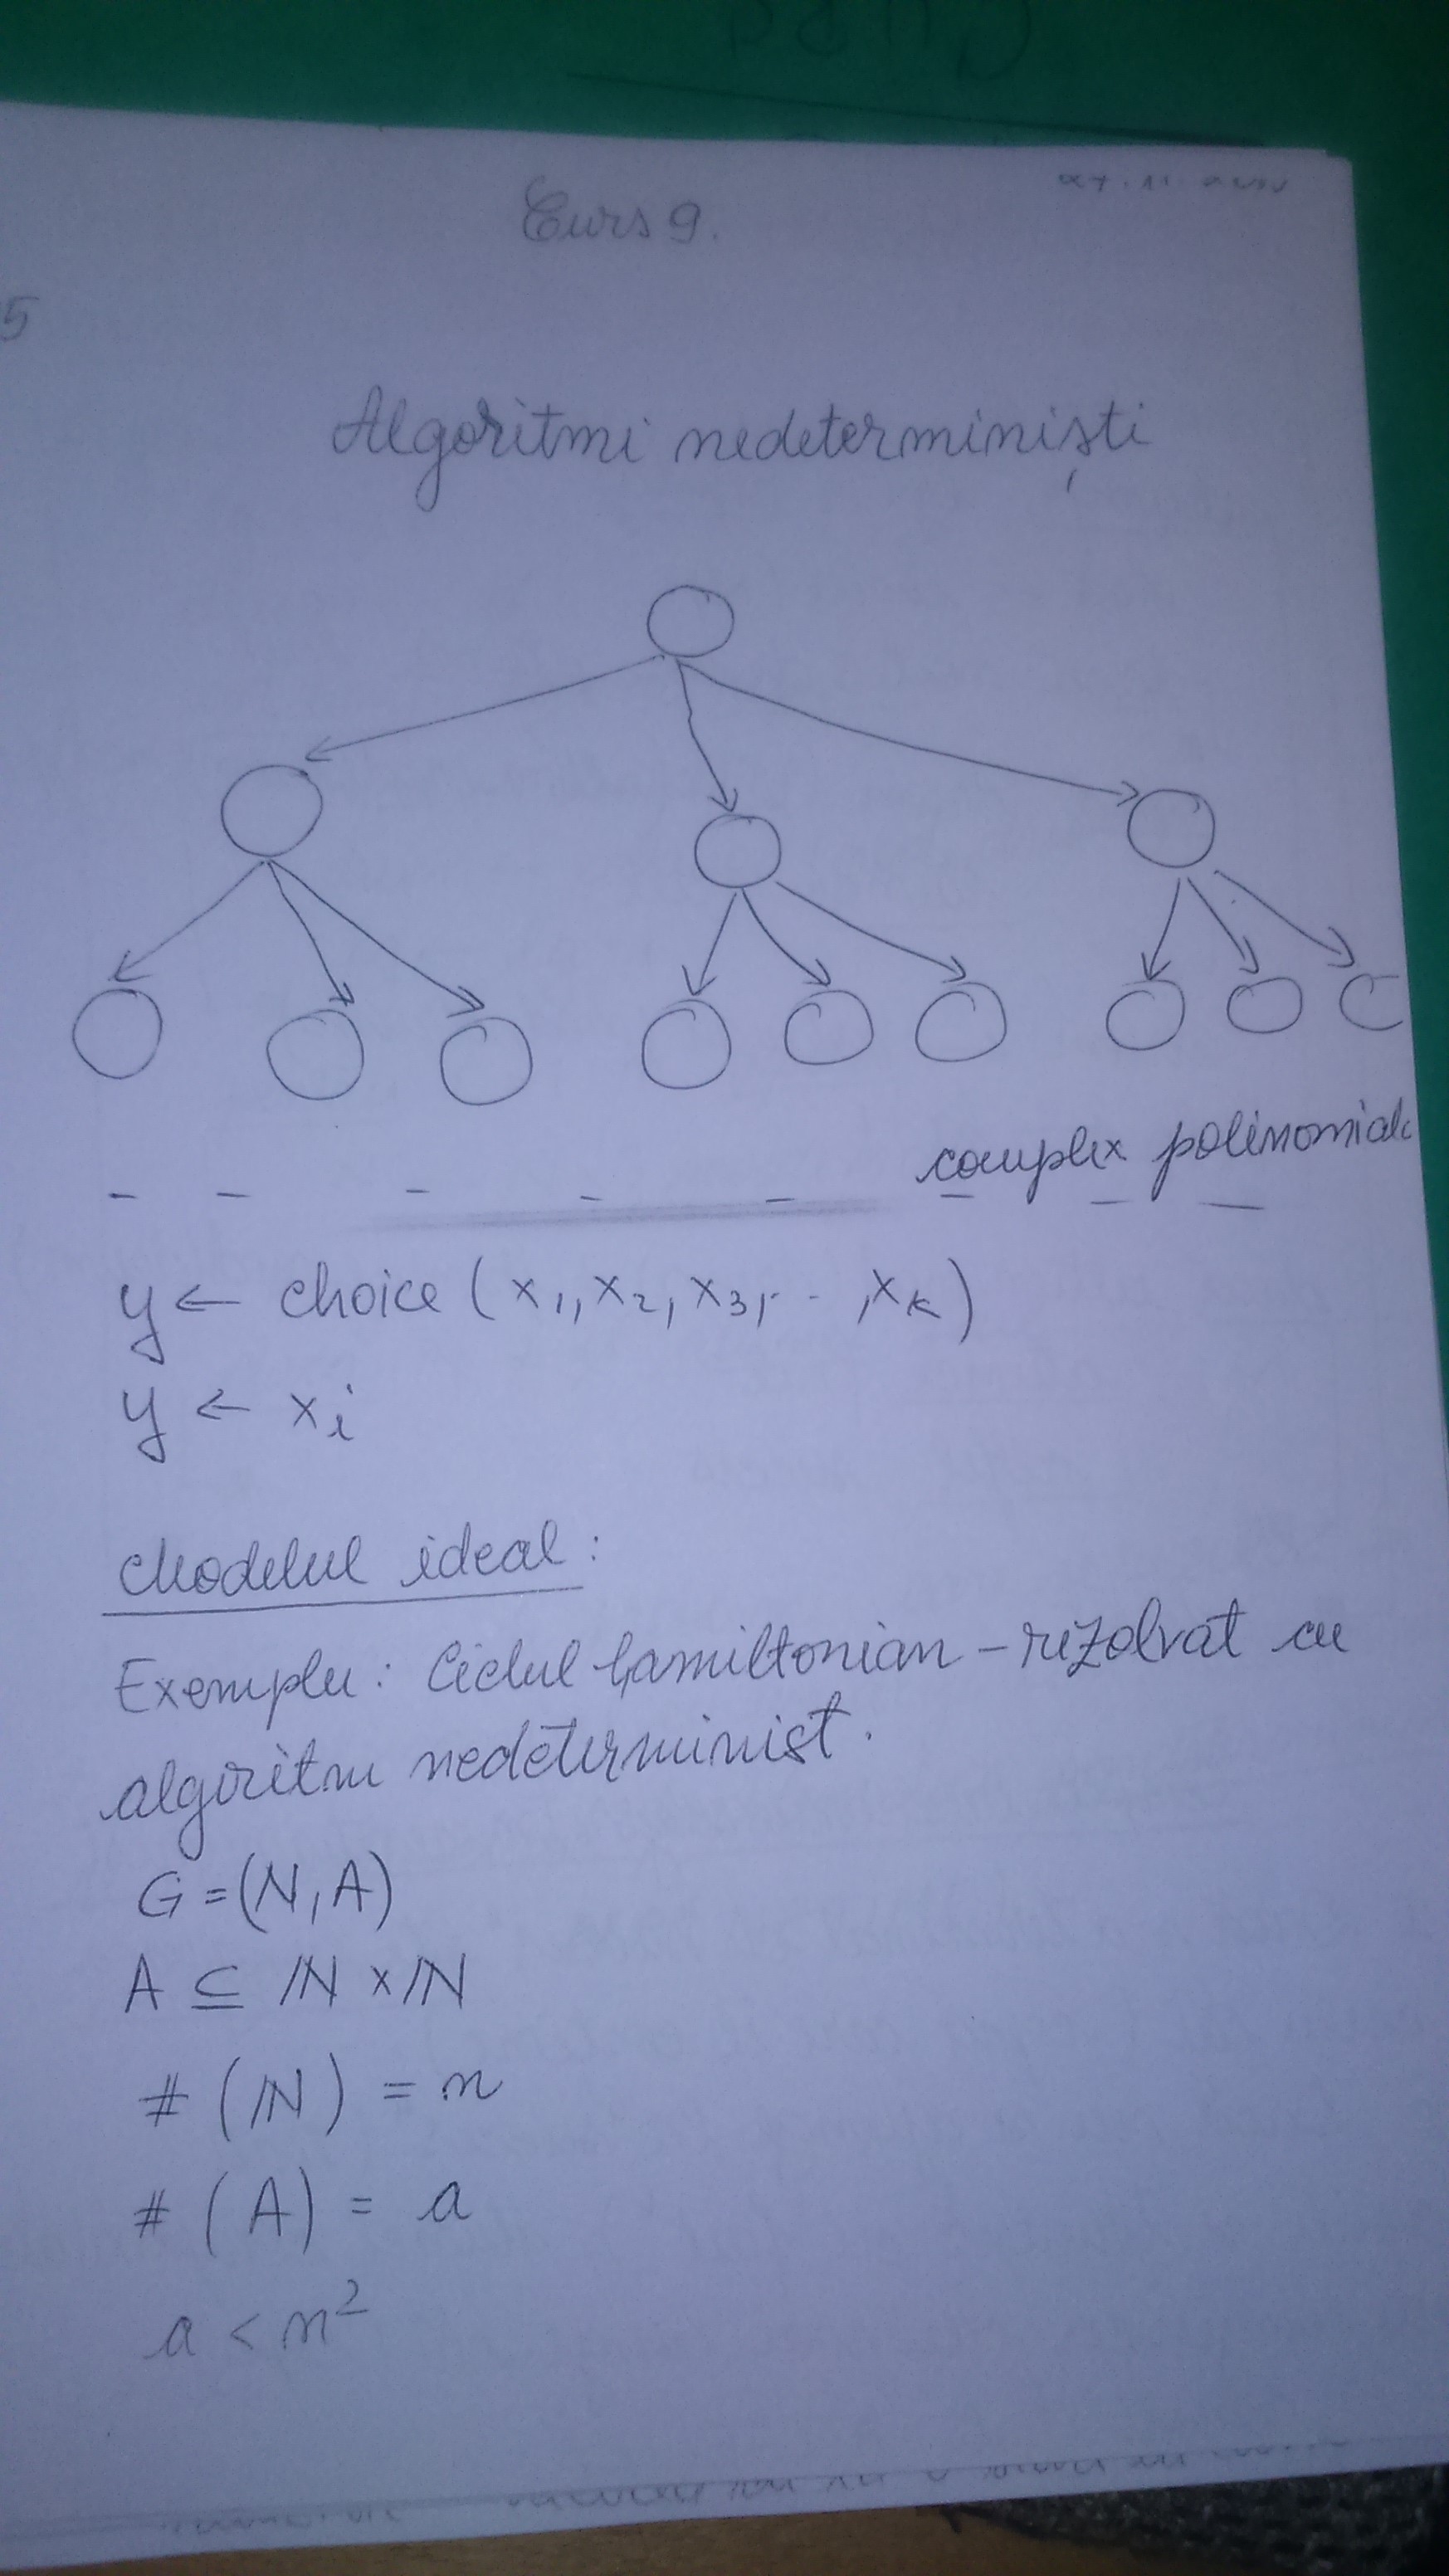 Curs 9.
5
Algoritmi nedeterminiști
complex polinomial
y ← choice (x1, x2, x3, . . , xk)
y ← xi
Modelul ideal :
Exemplu : Ciclul hamiltonian – rezolvat cu
algoritm nedeterminist.
G = (N, A)
A ⊆ IN × IN
# (IN) = n
# (A) = a
a < n²